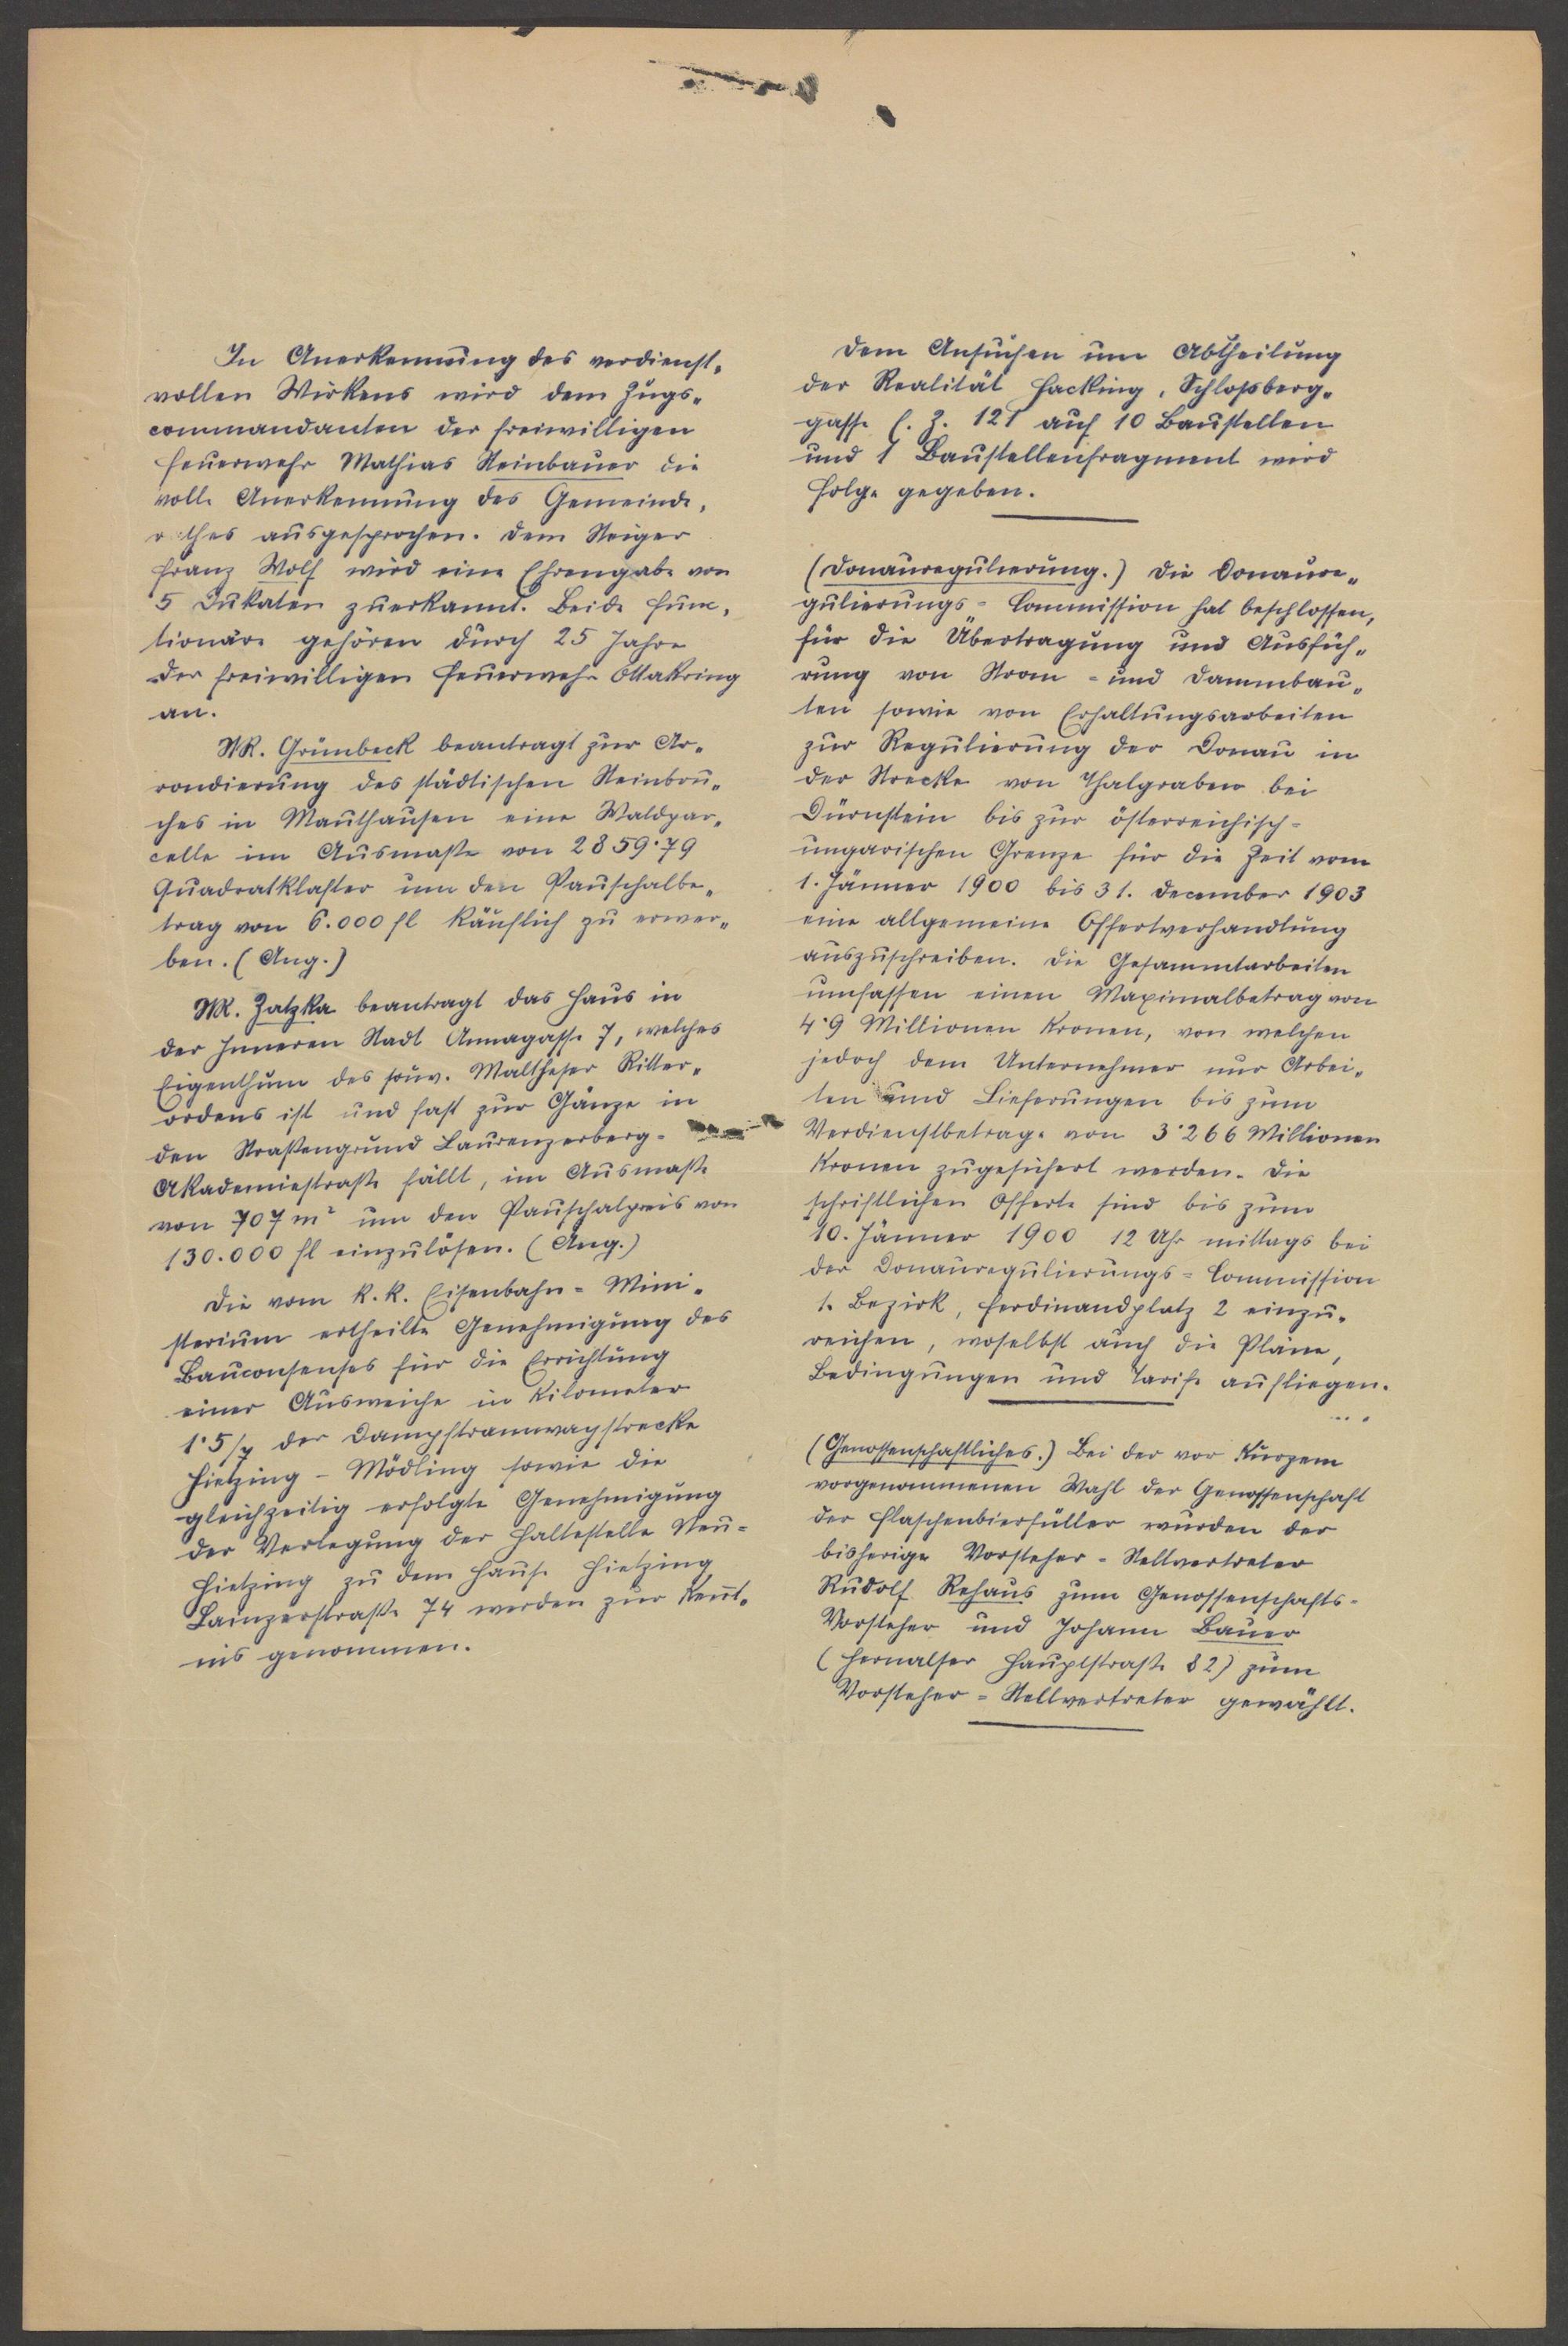 In Anerkennung des verdienst-
vollen Wirkens wird dem Zugs-
commandanten der freiwilligen
Feuerwehr Mathias Steinbauer die
volle Anerkennung des Gemeinde-
rathes ausgesprochen. Dem Steiger
Franz Wolf wird eine Ehrengabe von
5 Dukaten zuerkannt. Beide Func-
tionäre gehören durch 25 Jahre
der freiwilligen Feuerwehr Ottakring
an.
StR. Grünbeck beantragt zur Ar-
rondierung des städtischen Steinbru-
ches in Mauthausen eine Waldpar-
celle im Ausmaße von 2859·79
Quadratklafter um den Pauschalbe-
trag von 6.000 fl käuflich zu erwer-
ben. (Ang.)
StR. Zatzka beantragt das Haus in
der Inneren Stadt Annagasse 7, welches
Eigenthum des souv. Maltheser Ritter-
ordens ist und fast zur Gänze in
den Straßengrund Laurenzerberg-
Akademiestraße fällt, im Ausmaße
von 707 m² um den Pauschalpreis von
130.000 fl einzulösen. (Ang.)
Die vom k. k. Eisenbahn-Mini-
sterium ertheilte Genehmigung des
Bauconsenses für die Errichtung
einer Ausweiche in Kilometer
1·5/7 der Dampftramwaystrecke
Hietzing - Mödling sowie die
gleichzeitig erfolgte Genehmigung
der Verlegung der Haltestelle Neu-
Hietzing zu dem Hause Hietzing
Lainzerstraße 74 werden zur Kennt-
nis genommen.
Dem Ansuchen um Abtheilung
der Realität Hacking, Schloßberg-
gasse C. Z. 121 auf 10 Baustellen
und 1 Baustellenfragment wird
Folge gegeben.
(Donauregulierung.) Die Donaure-
gulierungs-Commission hat beschlossen,
für die Übertragung und Ausfüh-
rung von Strom- und Dammbau-
ten sowie von Erhaltungsarbeiten
zur Regulierung der Donau in
der Strecke von Thalgraben bei
Dürnstein bis zur österreichisch-
ungarischen Grenze für die Zeit vom
1. Jänner 1900 bis 31. December 1903
eine allgemeine Offertverhandlung
auszuschreiben. Die Gesammtarbeiten
umfassen einen Maximalbetrag von
4·9 Millionen Kronen, von welchen
jedoch dem Unternehmer nur Arbei-
ten und Lieferungen bis zum
Verdienstbetrage von 3·266 Millionen
Kronen zugesichert werden. Die
schriftlichen Offerte sind bis zum
10. Jänner 1900 12 Uhr mittags bei
der Donauregulierungs-Commission
1. Bezirk, Ferdinandplatz 2 einzu-
reichen, woselbst auch die Pläne,
Bedingungen und Tarife aufliegen.
(Genossenschaftliches.) Bei der vor Kurzem
vorgenommenen Wahl der Genossenschaft
der Flaschenbierfüller wurden der
bisherige Vorsteher-Stellvertreter
Rudolf Rehaus zum Genossenschafts-
Vorsteher und Johann Bauer
(Hernalser Hauptstraße 82) zum
Vorsteher-Stellvertreter gewählt.